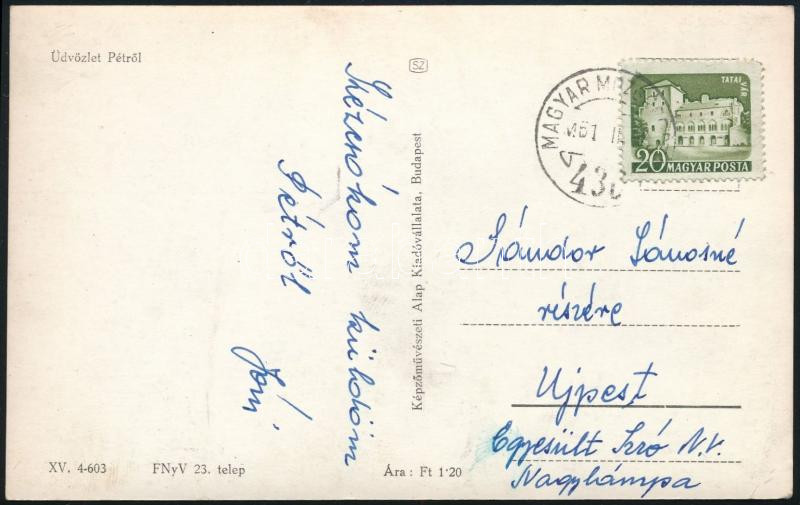 Üdvözlet Pétről
SZ
Kézcsókom küldöm
Pétről
Képzőművészeti Alap Kiadóvállalata, Budapest
MAGYAR
TATAI
VÁR
20 MAGYAR POSTA
Sándor Jánosné
részére
Ujpest
Egyesült Izzó N.V.
Nagylámpa
XV. 4-603
FNyV 23. telep
Ára: Ft 1·20